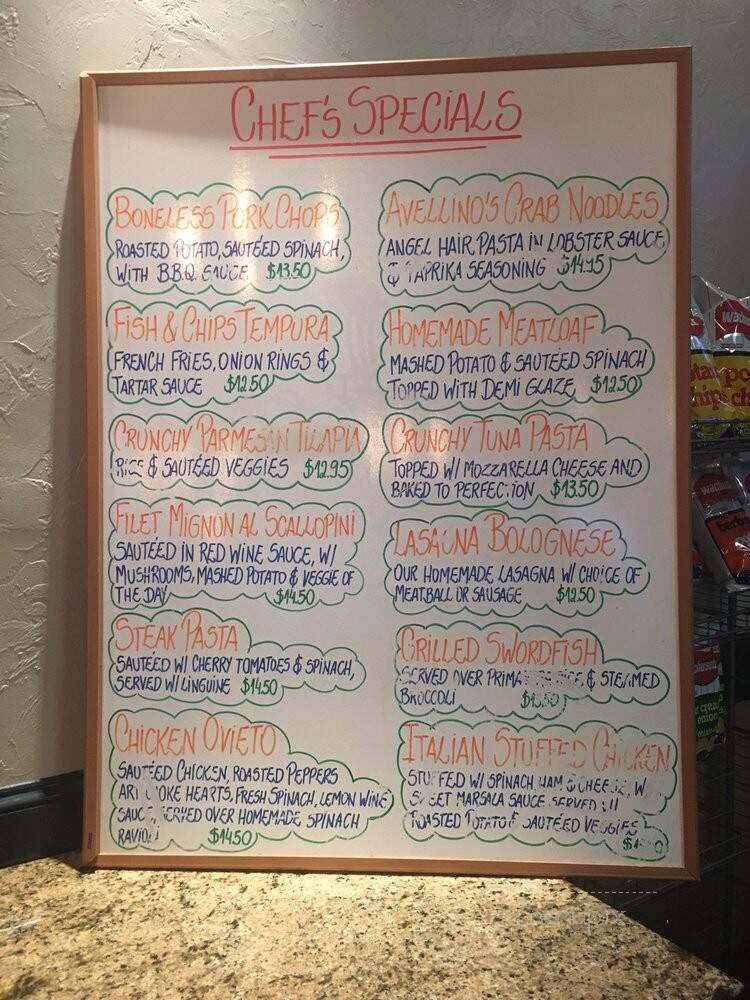 CHEF'S SPECIALS
BONELESS PORK CHOPS
ROASTED POTATO, SAUTÉED SPINACH,
WITH B.B.Q. SAUCE $13.50
FISH & CHIPS TEMPURA
FRENCH FRIES, ONION RINGS &
TARTAR SAUCE $12.50
CRUNCHY PARMESAN TILAPIA
RICE & SAUTÉED VEGGIES $12.95
FILET MIGNON AL SCALLOPINI
SAUTÉED IN RED WINE SAUCE, W/
MUSHROOMS, MASHED POTATO & VEGGIE OF
THE DAY $14.50
STEAK PASTA
SAUTÉED W/ CHERRY TOMATOES & SPINACH,
SERVED W/ LINGUINE $14.50
CHICKEN OVIETO
SAUTÉED CHICKEN, ROASTED PEPPERS
ARTICHOKE HEARTS, FRESH SPINACH, LEMON WINE
SAUCE, SERVED OVER HOMEMADE SPINACH
RAVIOLI $14.50
AVELLINO'S CRAB NOODLES
ANGEL HAIR PASTA IN LOBSTER SAUCE
& PAPRIKA SEASONING $14.95
HOMEMADE MEATLOAF
MASHED POTATO & SAUTÉED SPINACH
TOPPED WITH DEMI GLAZE $12.50
CRUNCHY TUNA PASTA
TOPPED W/ MOZZARELLA CHEESE AND
BAKED TO PERFECTION $13.50
LASAGNA BOLOGNESE
OUR HOMEMADE LASAGNA W/ CHOICE OF
MEATBALL OR SAUSAGE $12.50
GRILLED SWORDFISH
SERVED OVER & STEAMED
BROCCOLI
ITALIAN STUFFED CHICKEN
STUFFED W/ SPINACH, HAM & CHEESE, W/
SWEET MARSALA SAUCE SERVED
ROASTED POTATO & SAUTÉED VEGGIES